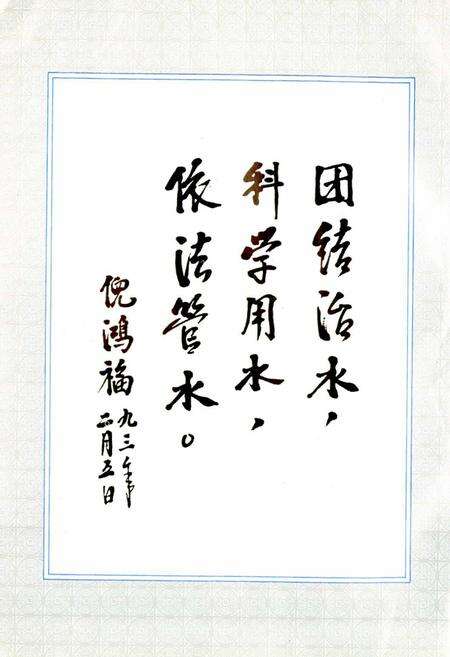 团结治水，
科学用水，
依法管水。
倪鸿福
九三年
二月五日